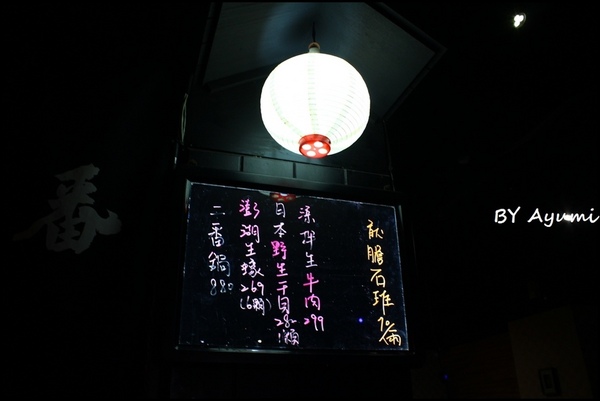 龍膽石班 70/兩
涼拌生牛肉 299
日本野生干貝 280/顆
澎湖生蠔 269(6顆)
二番鍋 880
番
BY Ayumi